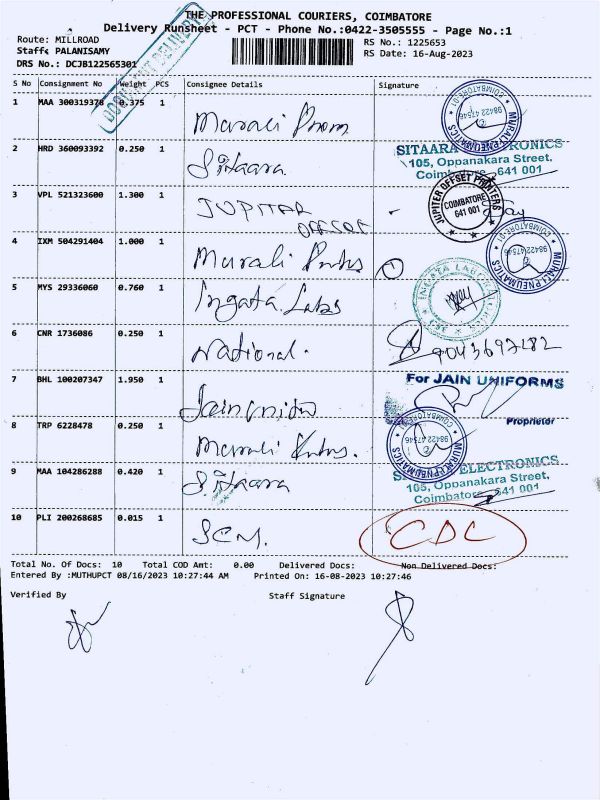 THE PROFESSIONAL COURIERS, COIMBATORE
Delivery Runsheet - PCT - Phone No.:0422-3505555 - Page No.:1
Route: MILLROAD
RS No.: 1225653
Staff: PALANISAMY
RS Date: 16-Aug-2023
DRS No.: DCJB122565301
S No Consignment No Weight PCS Consignee Details Signature
1 MAA 300319378 0.375 1 Murali
MURALI PNEUMATICS COIMBATORE-01 98422 47546
2 HRD 360093392 0.250 1 Sitaara
SITAARA ELECTRONICS
105, Oppanakara Street,
Coimbatore 641 001
3 VPL 521323600 1.300 1 JUPITER OFFSET
JUPITER OFFSET PRINTERS COIMBATORE 641 001
4 IXM 504291404 1.000 1 Murali
MURALI PNEUMATICS COIMBATORE-01 98422 47546
5 MYS 29336060 0.760 1 Ingata Labs
6 CNR 1736086 0.250 1 National.
9043697282
7 BHL 100207347 1.950 1 Jain
For JAIN UNIFORMS
Proprietor
8 TRP 6228478 0.250 1 Murali
MURALI PNEUMATICS COIMBATORE-01 98422 47546
9 MAA 104286288 0.420 1 Sitaara
ELECTRONICS
105, Oppanakara Street,
Coimbatore 641 001
10 PLI 200268685 0.015 1 SCM. CDC
Total No. Of Docs: 10 Total COD Amt: 0.00 Delivered Docs: Non Delivered Docs:
Entered By :MUTHUPCT 08/16/2023 10:27:44 AM Printed On: 16-08-2023 10:27:46
Verified By Staff Signature